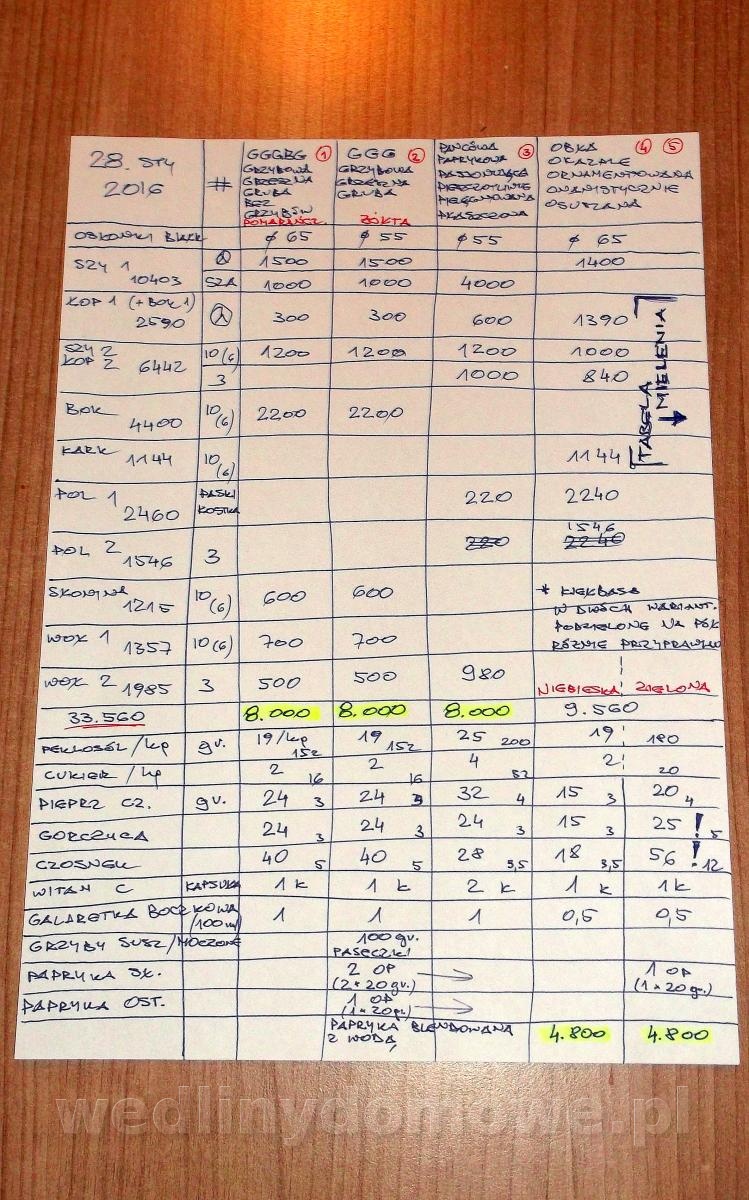 28. STY
2016
#
GGGBG ①
GRZYBOWA
GRZECZNA
GRUBA
BEZ
GRZYBÓW
POMARAŃCZ.
GGG ②
GRZYBOWA
GRZECZNA
GRUBA
ŻÓŁTA
③
PAPRYKOWA
PIESZCZOTLIWIE
PIELĘGNOWANA
PŁASZCZONA
OBKA ④ ⑤
OKAZALE
ORNAMENTOWANA
ONANISTYCZNIE
OSUSZANA
OSŁONKI BIAŁK ø 65 ø 55 ø 55 ø 65
SZY 1 10403 1500 1500 1400
SZA 1000 1000 4000
KOP 1 (+BOK 1) 2590 300 300 600 1390
SZY 2 KOP 2 6442 10(6) 1200 1200 1200 1000
3 1000 840
BOK 4400 10(6) 2200 2200
KARK 1144 10(6) 1144
TABELA MIELENIA
POL 1 2460 PASKI KOSTKA 220 2240
POL 2 1546 3 220 1546 2240
SKONINA 1215 10(6) 600 600
WOŁ 1 1357 10(6) 700 700
WOŁ 2 1985 3 500 500 980
* KIEŁBASA
W DWÓCH WARIANT.
PODZIELONE NA PÓŁ
RÓŻNIE PRZYPRAWIO
NIEBIESKA ZIELONA
33.560 8.000 8.000 8.000 9.560
PEKLOSÓL/kg gr. 19/kg 152 19 152 25 200 19 180
CUKIER/kg 2 16 2 16 4 32 2 20
PIEPRZ CZ. gr. 24 3 24 3 32 4 15 3 20 4
GORCZYCA 24 3 24 3 24 3 15 3 25 ! 5
CZOSNEK 40 5 40 5 28 3,5 18 3,5 56 ! 12
WITAM C KAPSUŁKA 1 K 1 K 2 K 1 K 1K
GALARETKA BOCZKOWA /100ml 1 1 1 0,5 0,5
GRZYBY SUSZ/MOCZONE 100 gr. PASECZKI
PAPRYKA SŁ. 2 OP (2 * 20 gr.) → 1 OP (1 * 20 gr.)
PAPRYKA OST. 1 OP (1 * 20 gr.) →
PAPRYKA BLENDOWANA
Z WODĄ
4.800 4.800
wedlinydomowe.pl